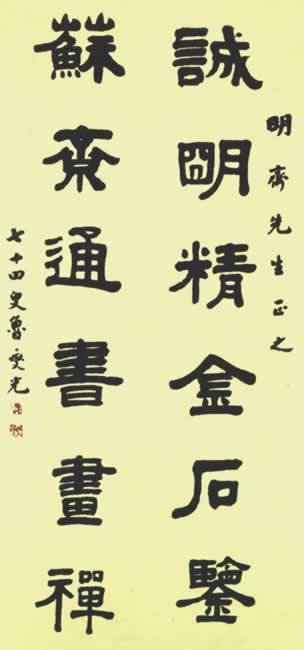 明齋先生正之
誠明精金石鑒
蘇齋通書畫禪
七十四叟魯燮光